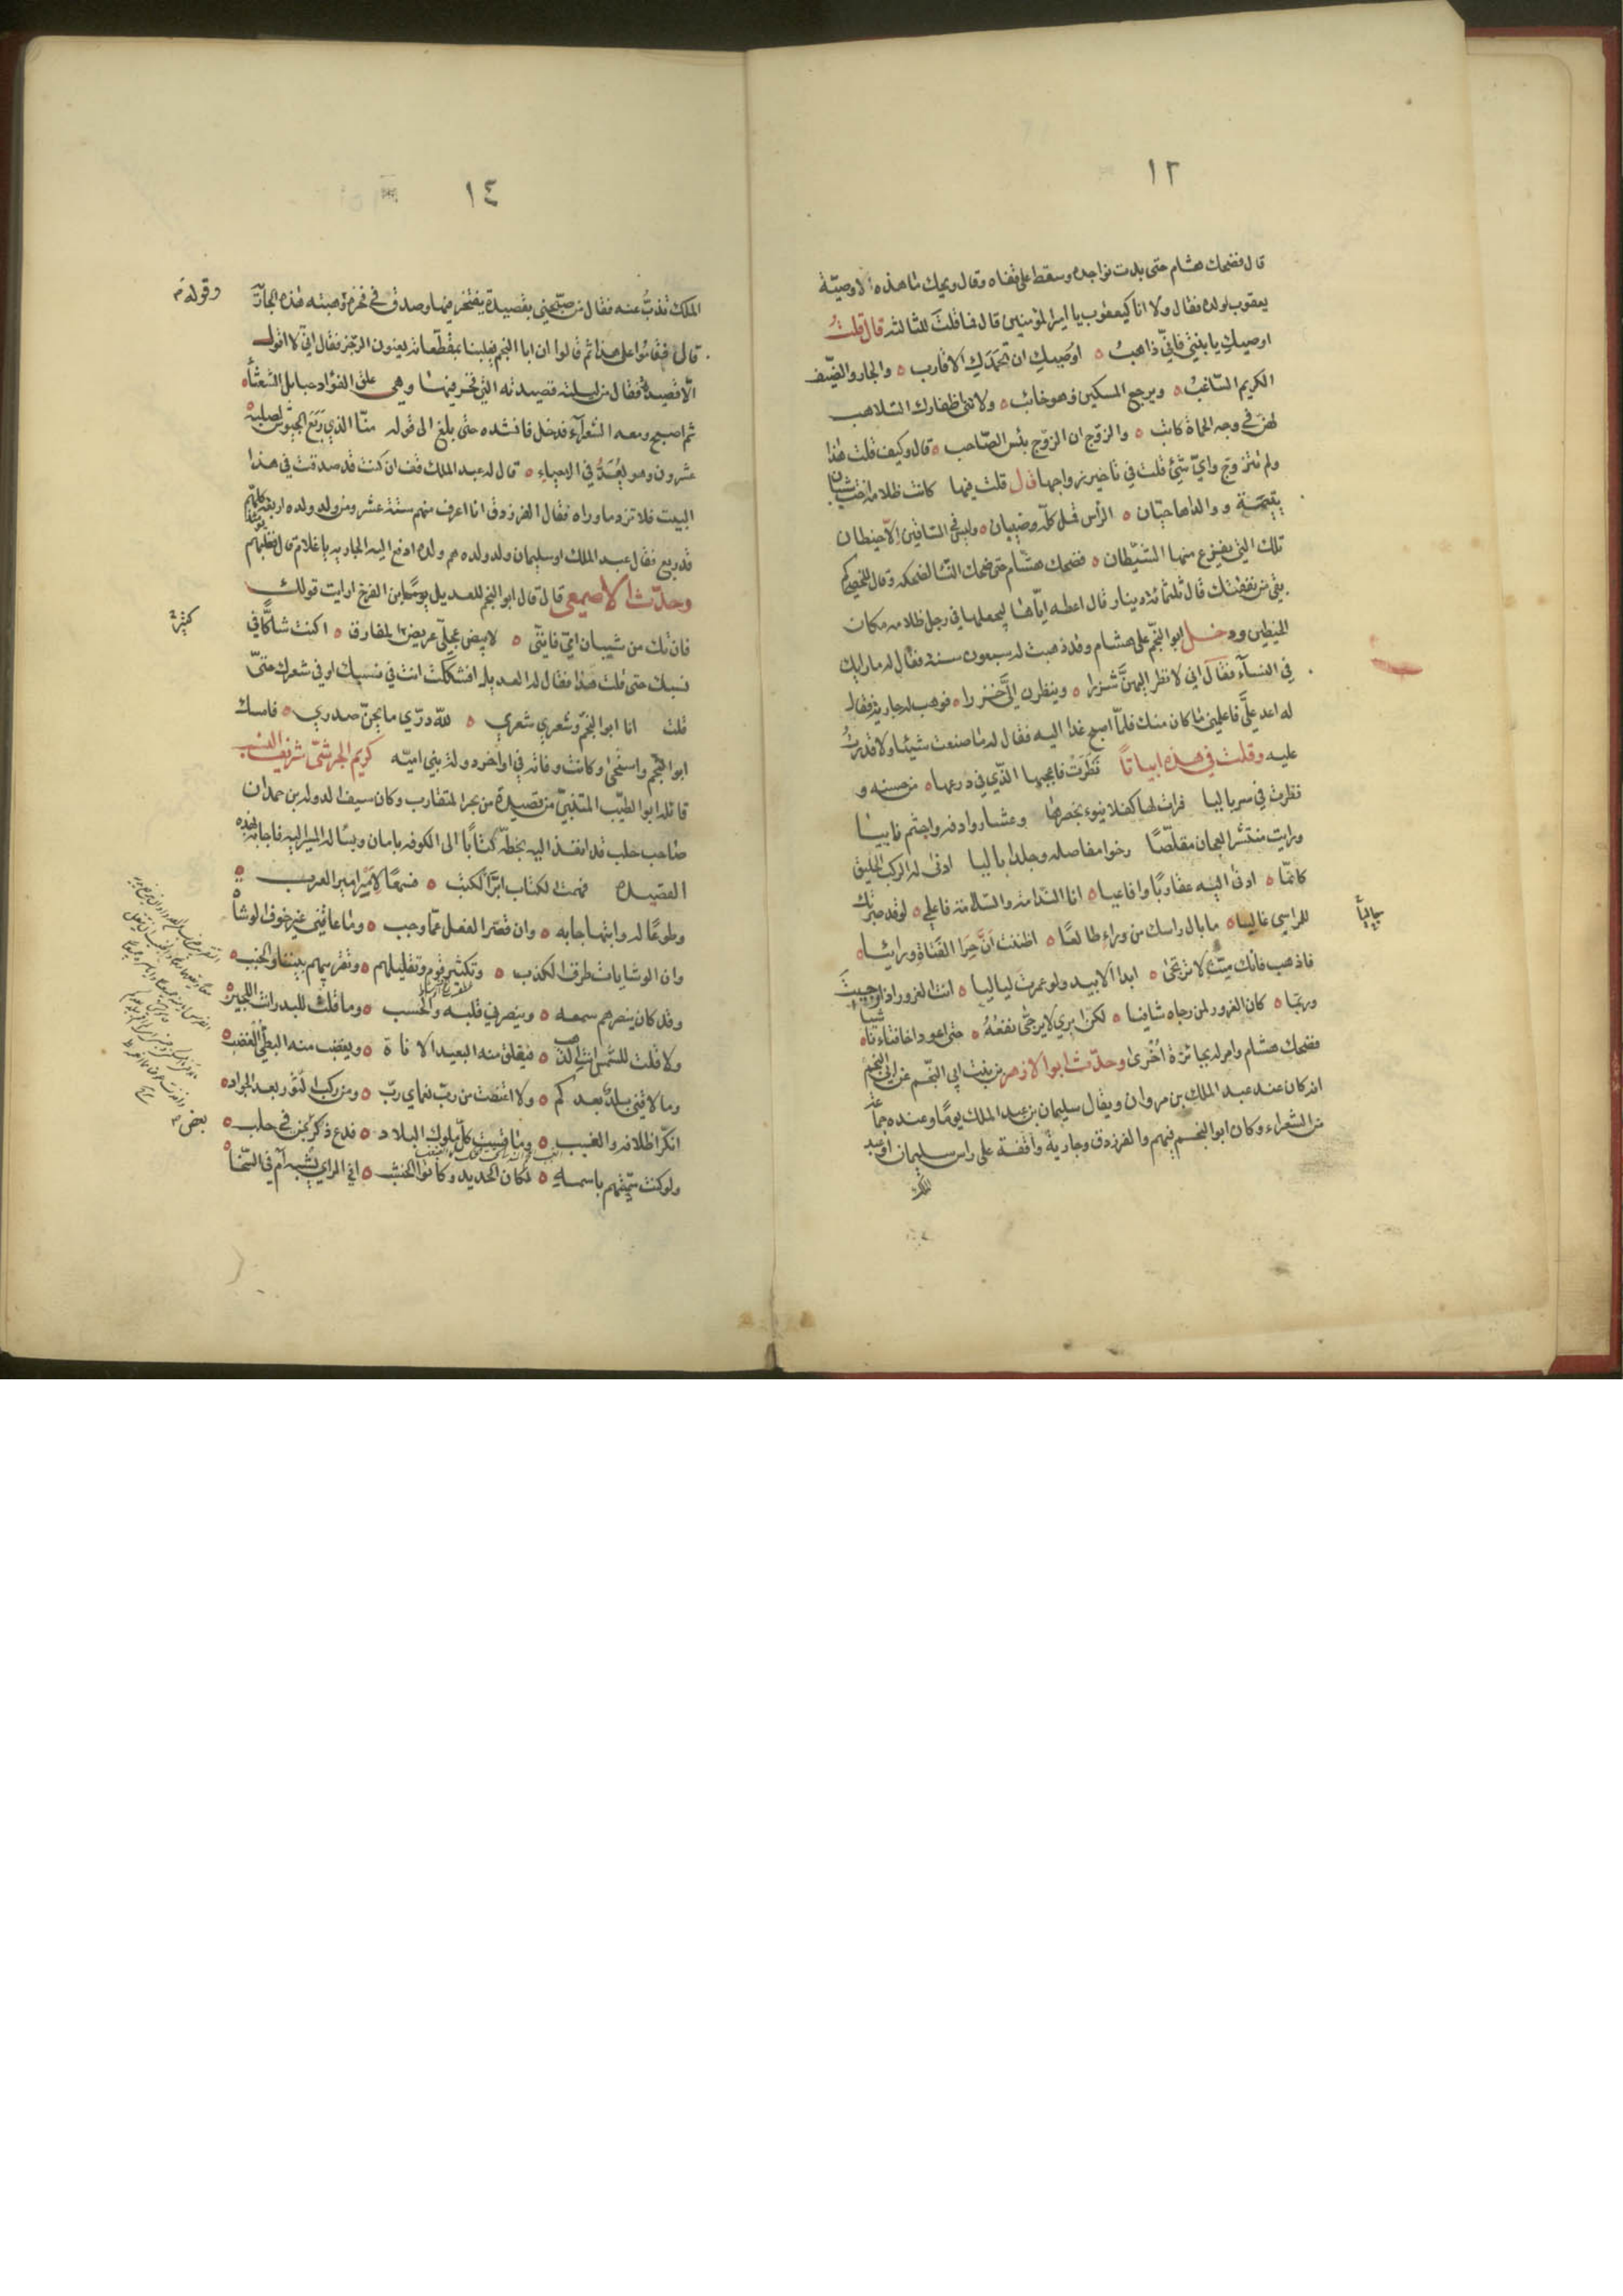 ١٢
قال فضحك هشام حتى بدت نواجده وسقط على قفاه وقال ويحك ما هذه الا وصيّة
يعقوب لولده فقال ولا انا كيعقوب يا امير المؤمنين قال فما قلت للثالثه قال قلتُ
اوصيك يا بنتي فاني ذاهبُ ه اوصيك ان تحمدك الاقارب ه والجار والضيف
الكريم السّاغبُ ه ويرجع المسكين وهو خائب ه ولا تني اظفارك السلاهب
لهن في وجه الحماة كاتب ه والزوج ان الزوج بئس الصّاحب ه قال وكيف قلت هذا
ولم تتزوج وايّ شيء قلت في تاخير زواجها قال قلت فيها كانت ظلامة اخت شيبان
يتيمة ووالداها حيّان ه الراس قمل كلّه وصئبان ه وليس في الساقين الا خيطان
تلك التي يفزع منها الشيطان ه فضحك هشام حتى ضحك النسا لضحكه وقال للخصي كم
بقي من نفقتك قال ثلثمائة دينار قال اعطه ايّاها ليجعلها في رجل ظلامه مكان
الخيطين ودخل ابو النجم على هشام وقد ذهبت له سبعون سنة فقال له ما رايك
في النسآء فقال اني لانظر اليهنّ شزرا ه وينظرن اليّ خزرا ه فوهب له جارية فقال
له اغد عليّ فاعلمني ما كان منك فلمّا اصبح غدا اليه فقال له ما صنعت شيئا ولا قدرتُ
عليه وقلت في هذه ابياتاً نَظَرَتْ فاعجبها الذي في درعها ه من حسنه و
نظرتُ في سرباليا فرات لها كفلا ينوء بخصرها وعثا روادفه واجثم نابيا
ورايت منتشر العجان مقلّصًا رخوا مفاصله وجلدا باليا ادنى له الركب الحليق
كانمّا ه ادنى اليه عقاربًا وافاعيا ه انا الندامة والسلامة فاعلمي ه لو قد صبرتك
للمواسي خاليا ه ما بال راسك من وراء طالعًا ه اظننت انّ حِرَ الفتاة ورائيا ه
جاليا
فاذهب فانك ميّت لا ترتجى ه ابدا الابيد ولو عمرت لياليا ه انت الغرور اذا خبرت
وربمّا ه كان الغرور لمن رجاه شافيا ه لكن ايري لا يرجّى نفعُهُ ه حتى اعود اخا فتاء ناشيا
فضحك هشام وامر له بجائزة اُخرى وحدّث ابو الازهر بن بنت ابي النجم عن ابي النجم
انه كان عند عبد الملك بن مروان ويقال سليمان بن عبد الملك يومًا وعنده جماعة
من الشعراء وكان ابو النجم فيهم والفرزدق وجارية واقفة على راس سليمان او عبد
الملك
١٤
الملك تذبّ عنه فقال من صبّحني بقصيدة يفتخر فيها وصدق في فخره وهبته هذه الجارية
وقوله
قال فقاموا على هذا ثم قالوا ان ابا النجم يغلبنا بمقطعاته يعنون الرجز فقال اني لا اقول
الا قصيدة فقال من ليلته قصيدته التي فخر فيها وهي علق الفؤاد حبايل الشعثاء
ثم اصبح ومعه الشعرآء فدخل فانشده حتى بلغ الى قوله منّا الذي رَبَعَ الجيوش لصلبه
عشرون وهو يُعَدُّ في الاحياء ه قال له عبد الملك قف ان كنت قد صدقت في هذا
البيت فلا تزد ما وراه فقال الفرزدق انا اعرف منهم ستة عشر ومن ولد ولده اربعة كلهم
قد ربع فقال عبد الملك او سليمان ولد ولده هم ولده ادفع اليه الجاريه يا غلام قال فغلبهم
وحدّث الاصمعي قال قال ابو النجم للعديل يومًا بن الفرخ ارايت قولك
فان تك من شيبان امي فانني ه لابيض عجلّي عريض المفارق ه اكنت شاكًّا في
كثرة
نسبك حتى قلت هذا فقال له العديل افشككت انت في نفسك او في شعرك حتى
قلت انا ابو النجم وشعري شعري ه لله درّي ما يجنّ صدري ه فامسك
ابو النجم واستحى وكانت وفاته في اواخر دولة بني اميّه كريم الجرشّى شريف النسب
قائله ابو الطيّب المتنبيّ من قصيدة من بحر المتقارب وكان سيف الدولة بن حمدان
صاحب حلب قد انفذ اليه بخطّه كتابًا الى الكوفه بامان ويساله المسير اليه فاجابه بهذه
القصيدة فهمت الكتاب ابرّ الكتب ه فسمعًا لامر امير العرب
وطوعًا له وابتهاجا به ه وان قصّر الفعل عمّا وجب ه وما عاقني غير خوف الوشاة
وان الوشايات طرق الكذب ه وتكثير قوم وتقليلهم ه وتقريبهم بيننا والخبب ه
وقد كان ينصرهم سمعه ه وينصرني قلبه والحسب ه وما قلت للبدر انت اللجين
ولا قلت للشمس انت الذهب ه فيقلق منه البعيد الاناة ه ويغضب منه البطيّ الغضب ه
وما لاقني بلدٌ بعدكم ه ولا اعتضت من ربّ نعماي ربّ ه ومن ركب الثور بعد الجواد ه
انكر اظلافه والغبب ه وما قست كلّ ملوك البلاد ه فدع ذكر بعض في حلب ه
بعض
ولو كنت سمّيتهم باسمه ه لكان الحديد وكانوا الخشب ه افي الراي يُشبه ام في السّخاء